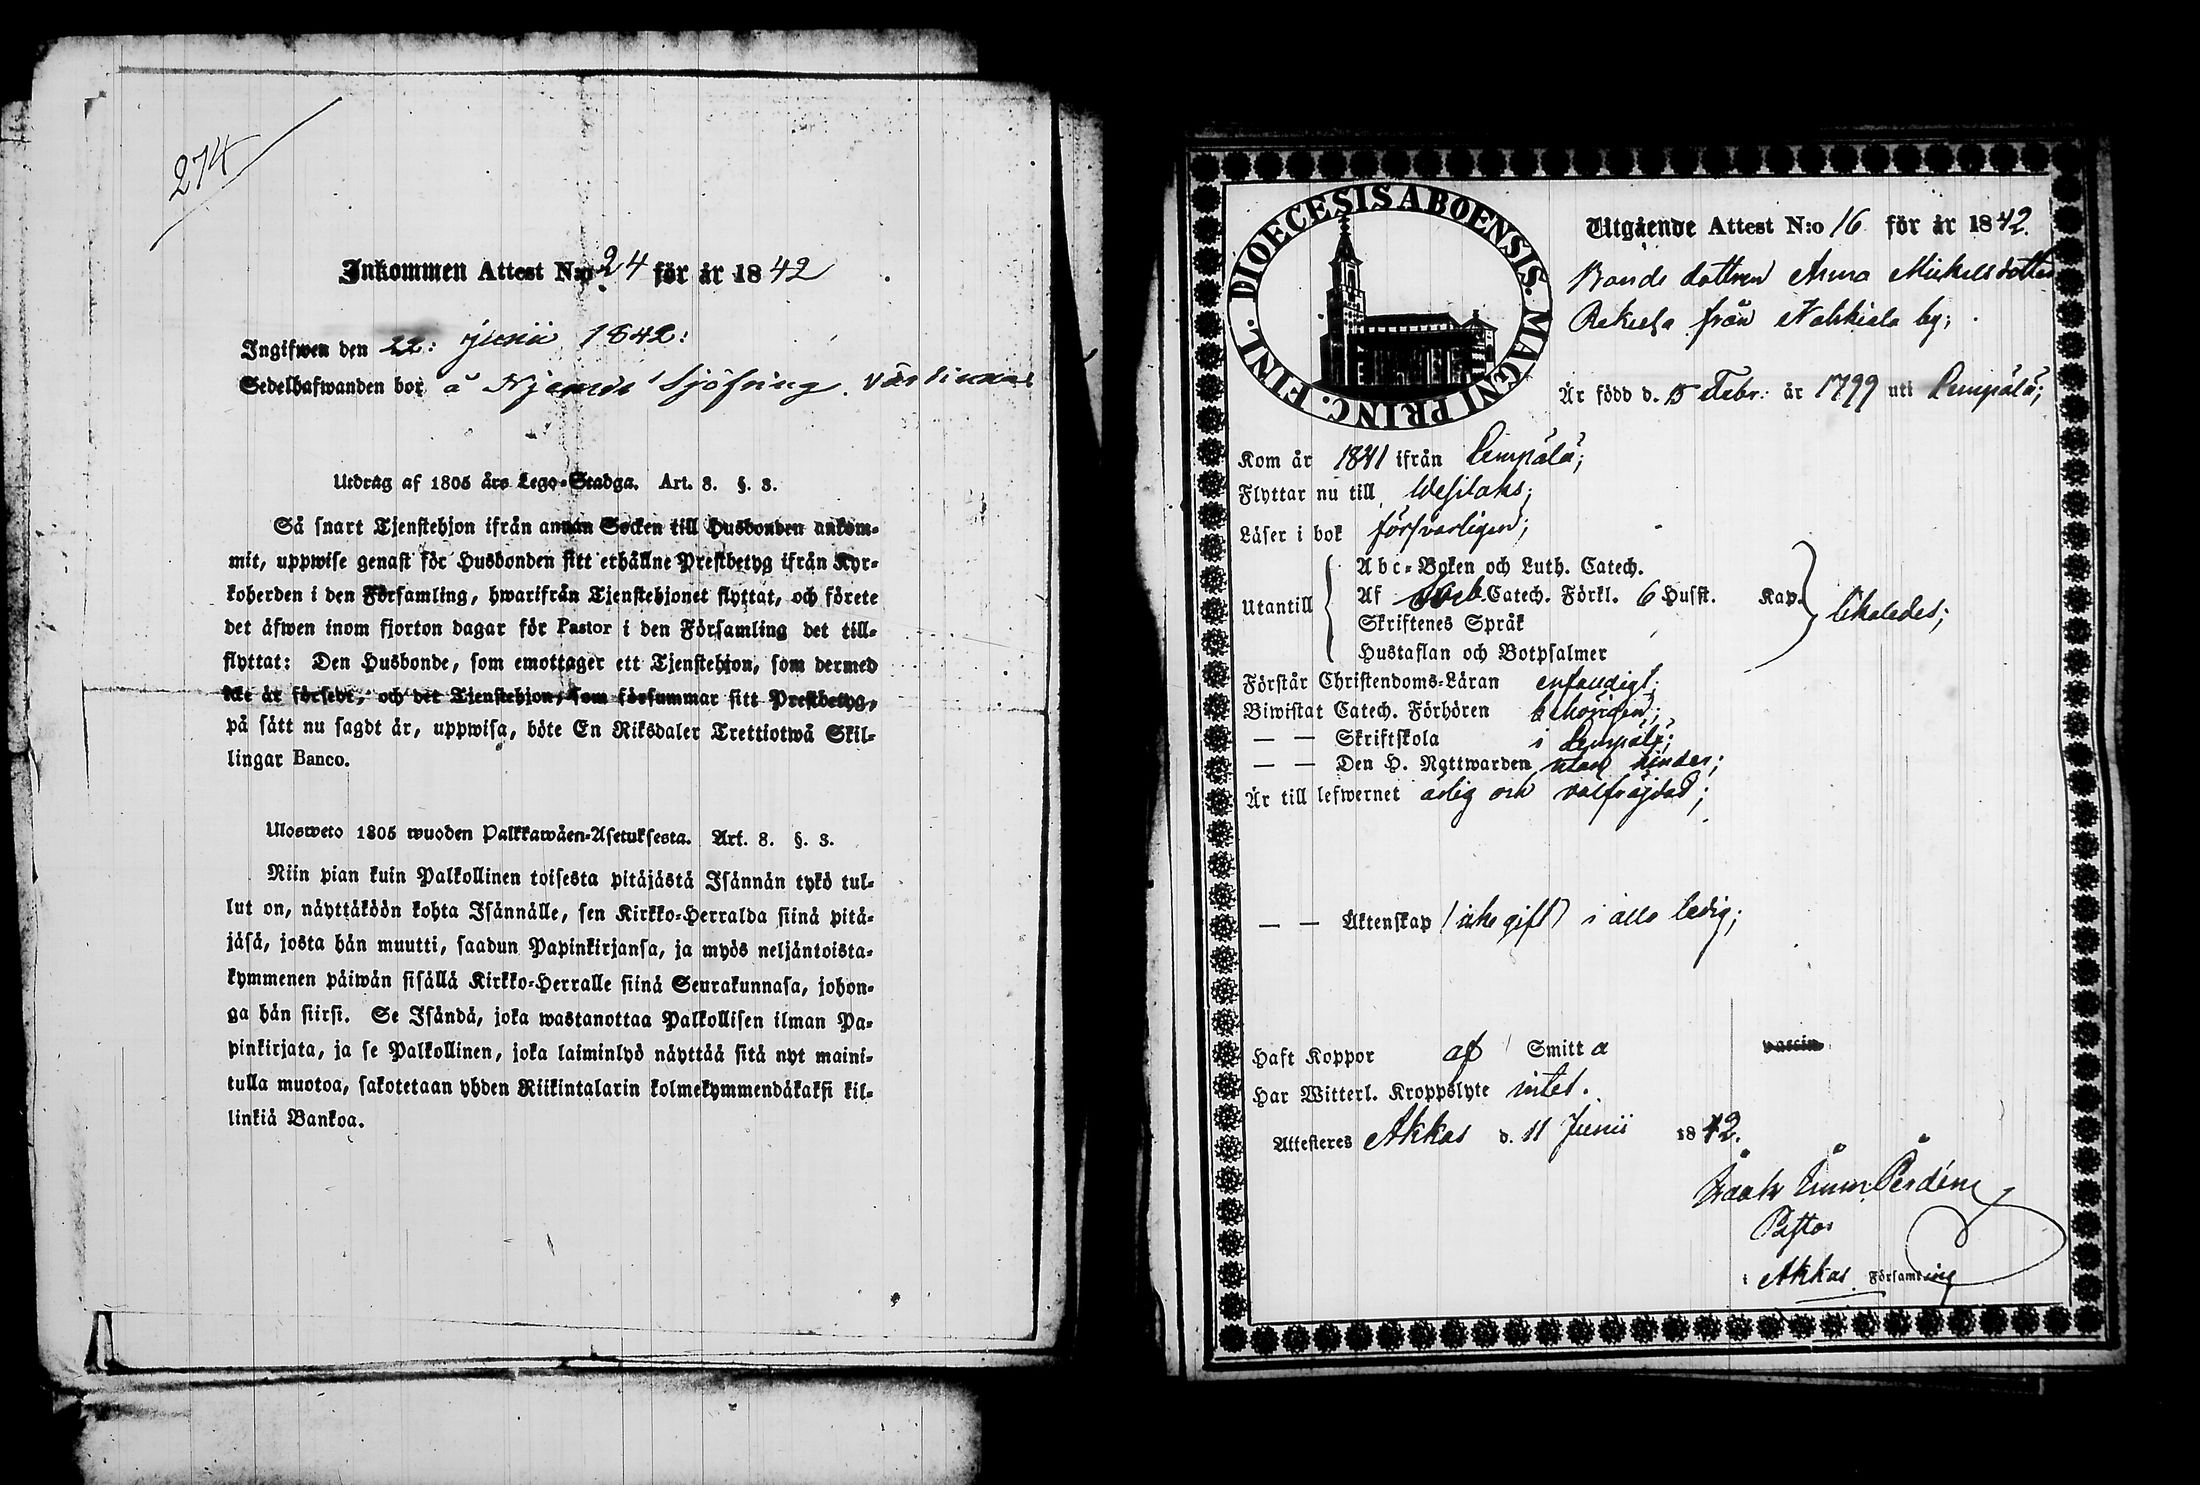 274
Inkommen Attest N:o 24 för år 1842
Ingifwen den 22: junii 1842:
Sedelhafwanden bor å Sjöfring. Värdinna
Utdrag af 1805 års Lego-Stadga. Art. 8. §. 3.
Så snart Tjenstehjon ifrån annan Socken till Husbonden ankom-
mit, uppwise genast för Husbonden sitt erhållne Prestbetyg ifrån Kyr-
koherden i den Församling, hwarifrån Tjenstehjonet flyttat, och förete
det äfwen inom fjorton dagar för Pastor i den Församling det till-
flyttat: Den Husbonde, som emottager ett Tjenstehjon, som dermed
icke är försedt, och det Tjenstehjon, som försummar sitt Prestbetyg,
på sätt nu sagdt är, uppwisa, böte En Riksdaler Trettiotwå Skil-
lingar Banco.
Ulosweto 1805 wuoden Palkkawäen-Asetuksesta. Art. 8. §. 3.
Niin pian kuin Palkollinen toisesta pitäjästä Isännän tykö tul-
lut on, näyttäköön kohta Isännälle, sen Kirkko-Herralda siinä pitä-
jäsä, josta hän muutti, saadun Papinkirjansa, ja myös neljäntoista-
kymmenen päiwän sisällä Kirkko-Herralle siinä Seurakunnasa, johon-
ga hän siirsi. Se Isändä, joka wastanottaa Palkollisen ilman Pa-
pinkirjata, ja se Palkollinen, joka laiminlyö näyttää sitä nyt maini-
tulla muotoa, sakotetaan yhden Riikintalarin kolmekymmendäkaksi kil-
linkiä Bankoa.
DIOECESIS ABOENSIS. MAGNI PRINC. FINL.
Utgående Attest N:o 16 för år 1842.
Bonde dottren Anna Mickelsdotter
från by;
Är född d. 15 Febr: år 1799 uti Lempälä;
Kom år 1841 ifrån Lempälä;
Flyttar nu till Wesilaks;
Läser i bok försvarligen;
Utantill
Abc-Boken och Luth. Catech.
Af Catech. Förkl. 6 Husst. Kap.
Skriftenes Språk
Hustaflan och Botpsalmer
likaledes;
Förstår Christendoms-Läran enfaldigt;
Biwistat Catech. Förhören behörigen;
— — Skriftskola i Lempälä;
— — Den H. Nattwarden utan hinder;
Är till lefwernet ärlig och välfräjdad;
— — Äktenskap (icke gift) i allo ledig;
Haft Koppor af Smitta
Har Witterl. Kroppslyte intet.
Attesteres Akkas d. 11 Junii 1842.
Pastor
i Akkas Församling